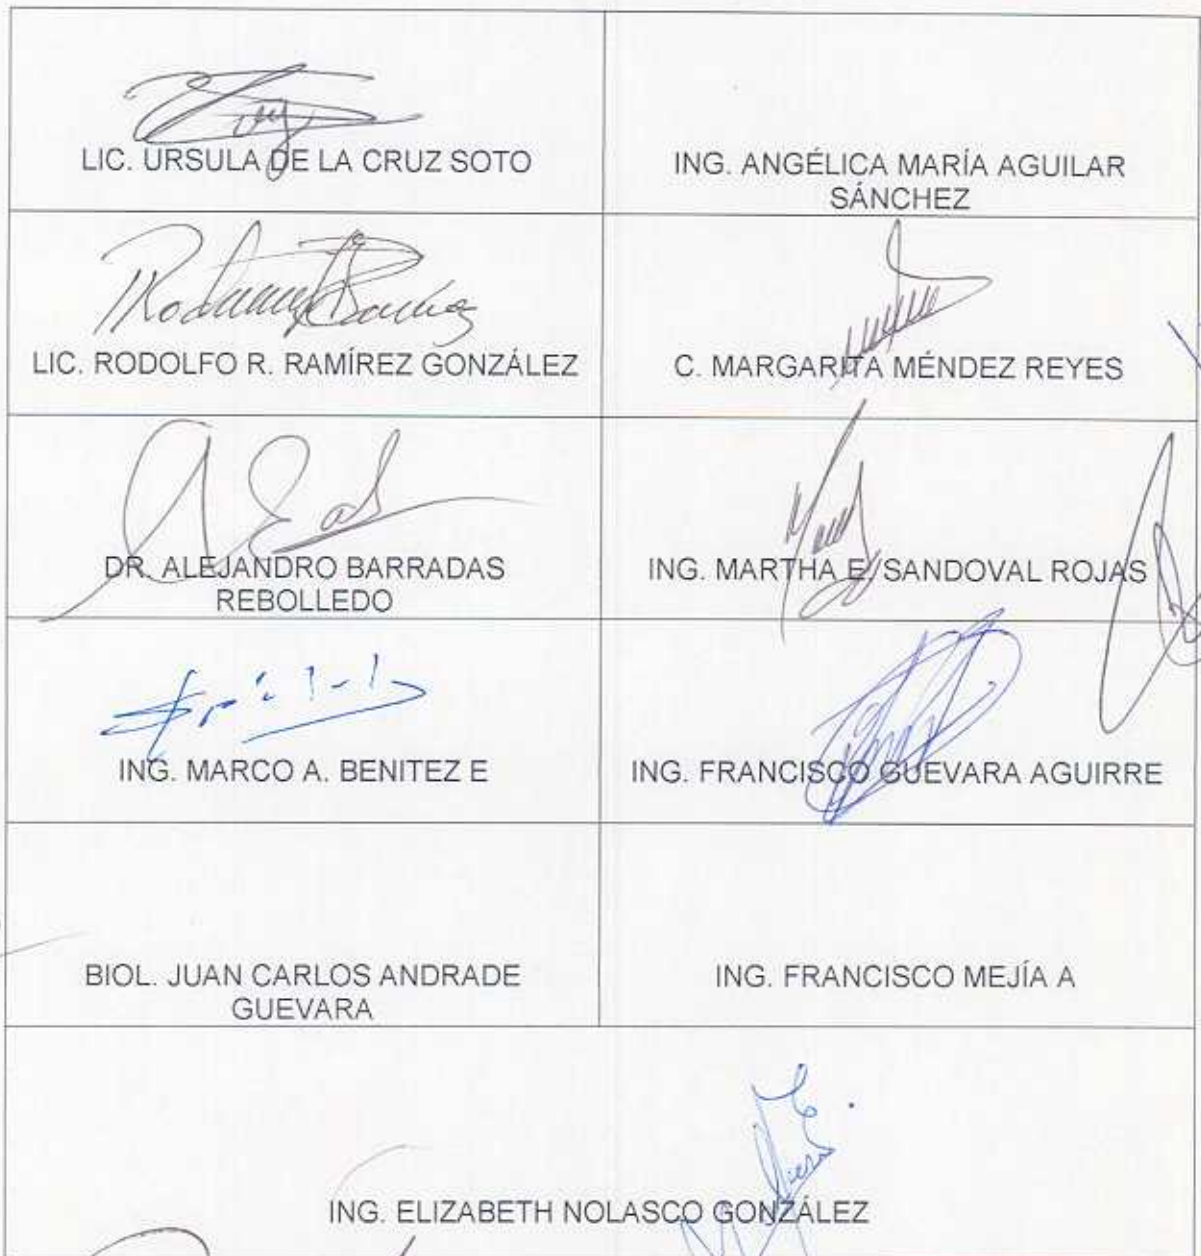 LIC. URSULA DE LA CRUZ SOTO
ING. ANGÉLICA MARÍA AGUILAR
SÁNCHEZ
LIC. RODOLFO R. RAMÍREZ GONZÁLEZ
C. MARGARITA MÉNDEZ REYES
DR. ALEJANDRO BARRADAS
REBOLLEDO
ING. MARTHA E. SANDOVAL ROJAS
ING. MARCO A. BENITEZ E
ING. FRANCISCO GUEVARA AGUIRRE
BIOL. JUAN CARLOS ANDRADE
GUEVARA
ING. FRANCISCO MEJÍA A
ING. ELIZABETH NOLASCO GONZÁLEZ